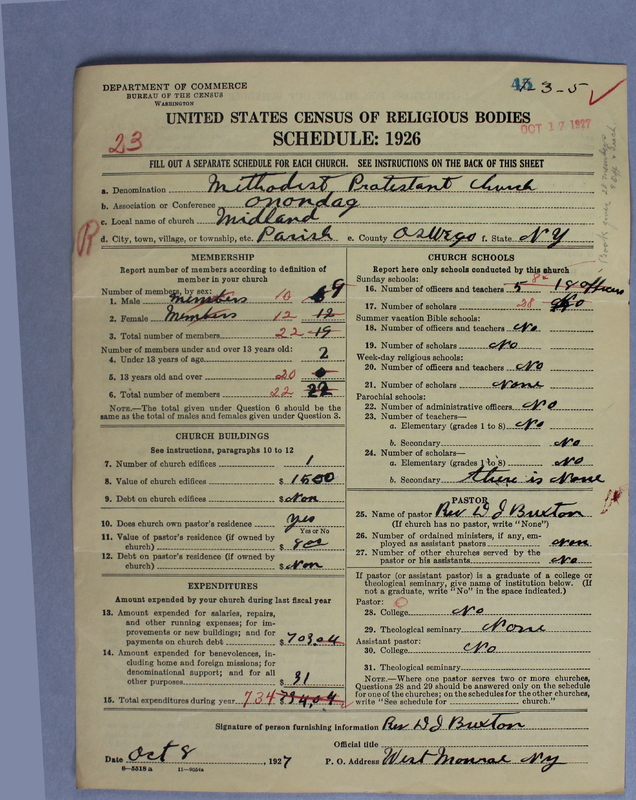 DEPARTMENT OF COMMERCE
BUREAU OF THE CENSUS
WASHINGTON
3-5
UNITED STATES CENSUS OF RELIGIOUS BODIES
OCT 17 1927
23
SCHEDULE: 1926
FILL OUT A SEPARATE SCHEDULE FOR EACH CHURCH. SEE INSTRUCTIONS ON THE BACK OF THIS SHEET
a. Denomination Methodist Protestant Church
b. Association or Conference Onondag
c. Local name of church Midland
R
d. City, town, village, or township, etc. Parish e. County Oswego f. State NY
MEMBERSHIP
Report number of members according to definition of member in your church
Number of members, by sex:
1. Male Members 10 9
2. Female Members 12 12
3. Total number of members 22 19
Number of members under and over 13 years old:
4. Under 13 years of age 2
5. 13 years old and over 20
6. Total number of members 22 22
NOTE.—The total given under Question 6 should be the
same as the total of males and females given under Question 3.
CHURCH BUILDINGS
See instructions, paragraphs 10 to 12
7. Number of church edifices 1
8. Value of church edifices $ 1500
9. Debt on church edifices $ Non
10. Does church own pastor's residence yes
Yes or No
11. Value of pastor's residence (if owned by
church) $ 800
12. Debt on pastor's residence (if owned by
church) $ Non
EXPENDITURES
Amount expended by your church during last fiscal year
13. Amount expended for salaries, repairs,
and other running expenses; for im-
provements or new buildings; and for
payments on church debt $ 703.04
14. Amount expended for benevolences,
including home and foreign missions; for
denominational support; and for all
other purposes $ 31
15. Total expenditures during year 734 $ 734.04
CHURCH SCHOOLS
Report here only schools conducted by this church
Sunday schools:
16. Number of officers and teachers 5 officers
17. Number of scholars 28
Summer vacation Bible schools:
18. Number of officers and teachers No
19. Number of scholars No
Week-day religious schools:
20. Number of officers and teachers No
21. Number of scholars None
Parochial schools:
22. Number of administrative officers No
23. Number of teachers—
a. Elementary (grades 1 to 8) No
b. Secondary No
24. Number of scholars—
a. Elementary (grades 1 to 8) No
b. Secondary there is None
PASTOR
25. Name of pastor Rev D J Buxton
(If church has no pastor, write "None")
26. Number of ordained ministers, if any, em-
ployed as assistant pastors Non
27. Number of other churches served by the
pastor or his assistants No
If pastor (or assistant pastor) is a graduate of a college or
theological seminary, give name of institution below. (If
not a graduate, write "No" in the space indicated.)
Pastor:
28. College No
29. Theological seminary None
Assistant pastor:
30. College No
31. Theological seminary
NOTE.—Where one pastor serves two or more churches,
Questions 28 and 29 should be answered only on the schedule
for one of the churches; on the schedules for the other churches,
write "See schedule for church."
Signature of person furnishing information Rev D J Buxton
Official title
Date Oct 8, 1927 P. O. Address West Monroe NY
8—5518 a 11—9054a